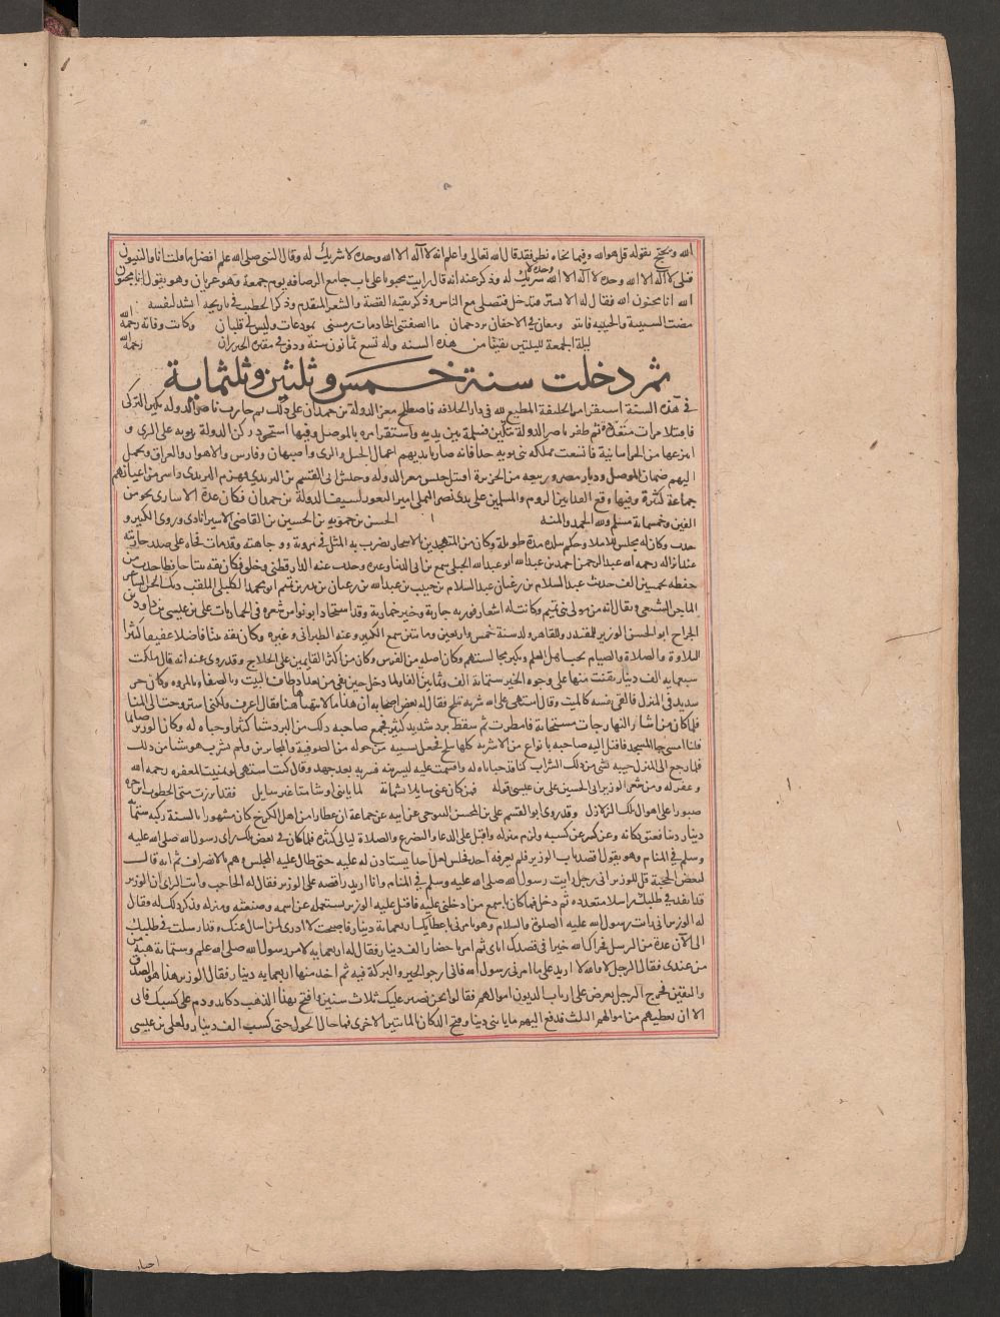 الله ويحتج بقوله قل هو الله وفيما نحاه نظر فقد قال الله تعالى واعلم انه لا اله الا الله وحده لا شريك له وقال النبي صلى الله علم افضل ما قلت انا والنبيون
قبلى لا اله الا الله وحده لا اله الا الله وحده لا شريك له وذكر عنه انه قال رايت مجنونا على باب جامع الرصافه يوم جمعة وهو عريان وهو يقول انا مجنون
الله انا مجنون الله فقال له الا تستتر وتدخل فتصلى مع الناس وذكر بقيه القصة والشعر المتقدم وذكر الخطيب في تاريخه انشد لنفسه
مضت الشبيبة والحبيبه فانبرى دمعان في الاجفان يزدحمان ما انصفتنى الحادثات رمينني بمودعات وليس لي قلبان وكانت وفاته رحمه الله
ليلة الجمعة لليلتين بقيتا من هذه السنه وله سبع ثمانون سنة ودفن في مقبرة الخيزران رحمه الله
ثم دخلت سنة خمس وثلثين وثلثماية
في هذه السنة استقر امر الخليفة المطيع لله في دار الخلافه فاصطلح معز الدولة بن حمدان على ذلك ثم حارب ناصر الدوله تكين التركي
فاقتتلا مرات متعددة ثم ظفر ناصر الدولة بتكين فسمله بين يديه واستقر امره بالموصل وفيها استحوذ ركن الدولة بن بويه على الري و
انتزعها من الخراسانية فاتسعت مملكه بنى بويه جدا فانه صار بايديهم اعمال الجبل والرى واصبهان وفارس والاهواز والعراق ويحمل
اليهم ضمان الموصل وديار مضر وربيعه من الجزيرة ثم اقتتل جيش معز الدوله وجيش ابى القسم بن البريدي فهزم البريدى واسر من اعيانهم
جماعة كثيرة وفيها وقع الفدا بين الروم والمسلمين على يدى نصر الثملى امير الثغور لسيف الدولة بن حمدان فكان عدة الاسارى نحو من
الفين وخمسماية مسلم ولله الحمد والمنه الحسن بن حمويه بن الحسين بن القاضى الاستراباذى وروى الكثير و
حدث وكان له مجلس للاملا وحكم ببلده مدة طويلة وكان من المتهجدين بالاسحار يضرب به المثل في مروته ووجاهته وقد مات فجاه على صدر جاريته
عند انزاله رحمه الله عبد الرحمن بن احمد بن عبد الله ابو عبد الله الختلي سمع ابن ابى الدنيا وغيره وحدث عنه الدارقطنى وخلق وكان ثقه نبتا حافظا حدث من
حفظه بخمسين الف حديث عبد السلام بن رغبان بن عبد السلام بن حبيب بن عبد الله بن رغبان بن يزيد بن تميم ابو محمد الكلبى الملقب ديك الجن الشاعر
الماجن الشيعى يقال انه من موالى بنى تميم وكانت له اشعار قويه
الجراح ابو الحسن الوزير للمقتدر والقاهر ولد سنة خمس واربعين ومايتين سمع الكثير وعنه الطبرانى وغيره وكان ثقه نبتا فاضلا عفيفا كثير
التلاوة والصلاة والصيام يحب اهل العلم ويكثر مجالستهم وكان اصله من الفرس وكان من اكثر القايمين على الحلاج وقد روى عنه انه قال ملكت
سبعمايه الف دينار انفقت منها على وجوه الخير ستماية الف وثمانين الفا ولما دخل
شديد في المنزل فالقى نفسه كالميت وقال اشتهى على الله شربة ثلج فقال له بعض اصحابه ان هذا مما لا يتهيا ههنا فقال اعرف ولكنى استروحت الى المنا
فلما كان من اثناء النهار جات سحابة فامطرت ثم سقط برد شديد كثير فجمع صاحبه ذلك من البرد شيا كثيرا وخباه له وكان الوزير صايما
فلما امسى جا المسجد فاقبل اليه صاحبه بانواع من الاشربه كلها بثلج فجعل يسقيه من حوله من الصوفية والمجاورين ولم يشرب هو شيا من ذلك
فلما رجع الى المنزل جيته بشى من ذلك الشراب كنا قد خباناه له واقسمت عليه ليشربنه فشربه بعد جهد وقال كنت اشتهى لو تمنيت المغفره رحمه الله
وغفر له ومن شعر الوزير ابى الحسن على بن عيسى قوله فمن كان عنى سايلا بشماتة لما نابنى او شامتا غير سايل فقد ابرزت منى الخطوب ابن حرة
صبورا على اهوال تلك الزلازل وقد روى ابو القسم على بن المحسن التنوخى عن ابيه عن جماعة ان عطارا من اهل الكرخ كان مشهورا بالسنة ركبه ستماية
دينار دينا فغلق دكانه وعن كسبه ولزم منزله واقبل على الدعا والتضرع والصلاة ليالى كثيره فلما كان في بعض تلك راى رسول الله صلى الله عليه
وسلم في المنام وهو يقول اقصد باب الوزير فلم يعرفه احد فجلس لعل احدا يستاذن له عليه حتى طال عليه المجلس وهم بالانصراف ثم انه قال
لبعض الحجبة قل للوزير انى رجل رايت رسول الله صلى الله عليه وسلم في المنام وانا اريد ان اقصه على الوزير فقال له الحاجب وانت الراى ان الوزير
قد انفد في طلبك رسلا متعدده ثم دخل فما كان باسرع من ادخلنى عليه فاقبل عليه الوزير يستعلمه عن اسمه وصنعته ومنزله وذكر ذلك له وقال
له الوزير انى رايت رسول الله عليه الصلوة والسلام وهو يامرنى باعطايك اربعماية دينار فاصبحت لا ادرى لمن اسال عنك وقد ارسلت في طلبك
الى الآن عدة من الرسل فجزاك الله خيرا في قصدك اياى ثم امر باحضار الف دينار فقال له اربعمايه لامر رسول الله صلى الله علم وستماية هبة من
من عندى فقال الرجل لا والله لا ازيد على ما امرنى رسول الله فانى ارجو الخير والبركة فيه ثم اخد منها اربعمايه دينار فقال الوزير هذا هو الصدق
واليقين فخرج الرجل يعرض على ارباب الديون اموالهم فقالوا نحن نصبر عليك ثلاث سنين وافتح بهذا الذهب دكانك ودم على كسبك فابى
الا ان يعطيهم من اموالهم الثلث فدفع اليهم مايتى دينار وفتح الدكان بالمايتين الاخرى فما حال الحول حتى كسب الف دينار ولعلى بن عيسى
اخبار